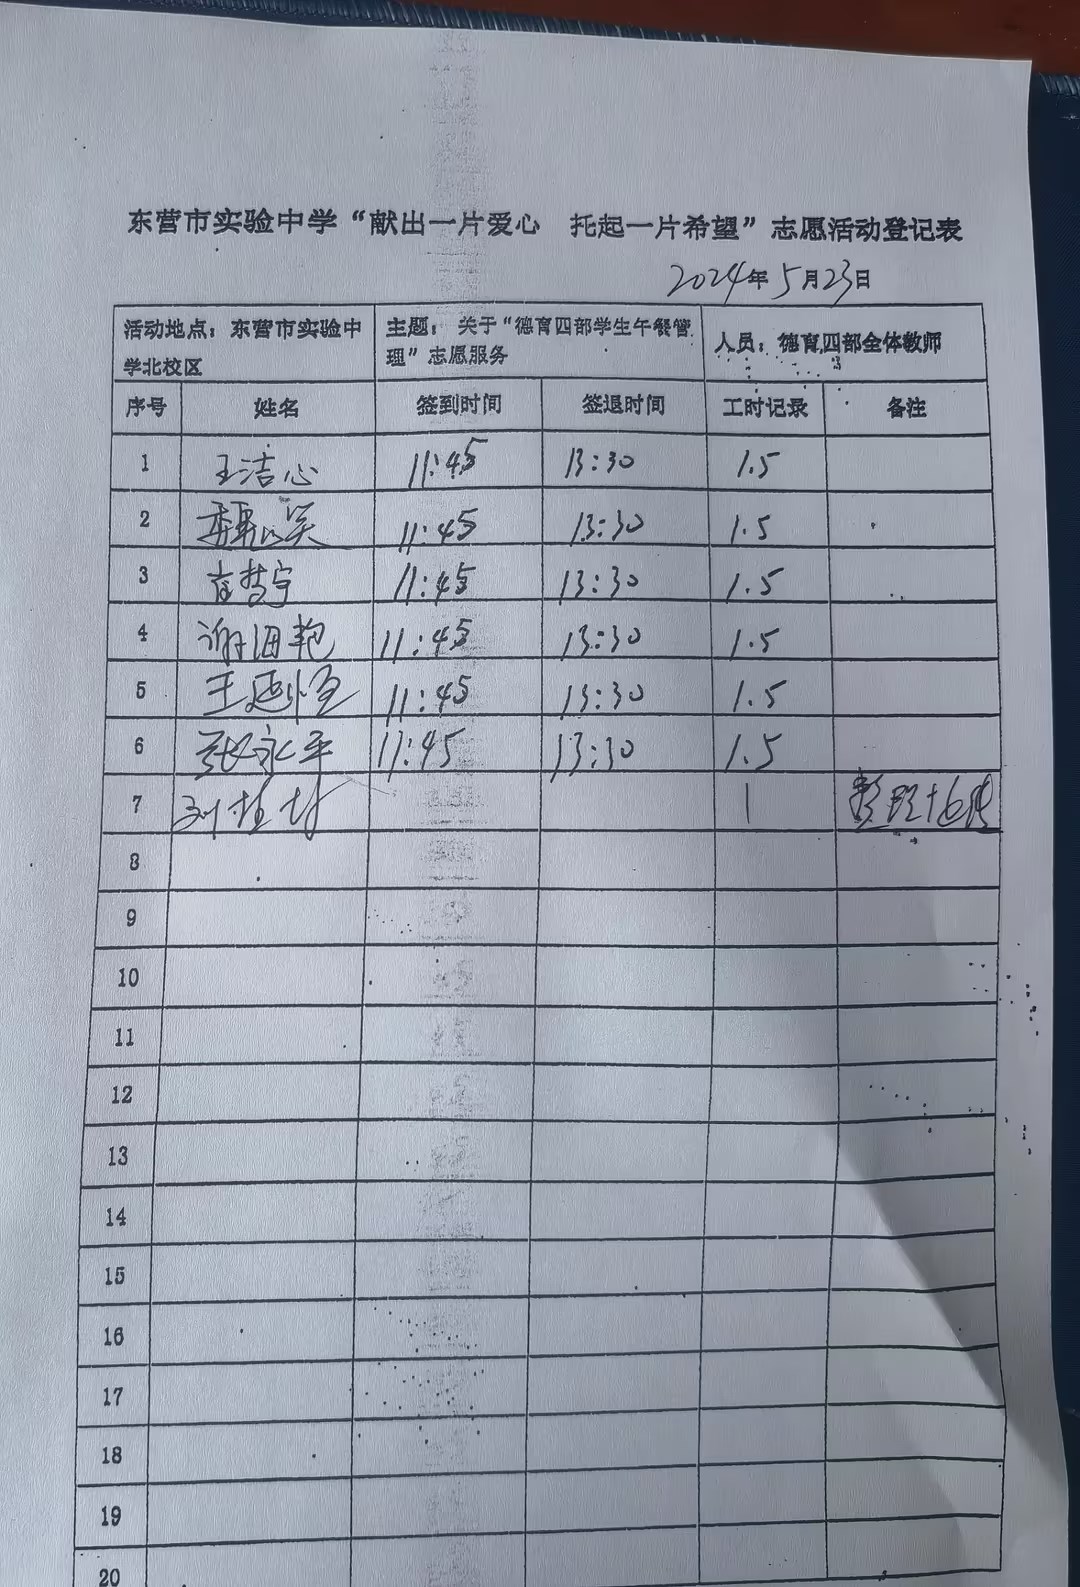 东营市实验中学“献出一片爱心 托起一片希望”志愿活动登记表
2024年5月23日
活动地点：东营市实验中学北校区 主题：关于“德育四部学生午餐管理”志愿服务 人员：德育四部全体教师
序号 姓名 签到时间 签退时间 工时记录 备注
1 王洁心 11:45 13:30 1.5
2 11:45 13:30 1.5
3 11:45 13:30 1.5
4 谢海艳 11:45 13:30 1.5
5 王延恒 11:45 13:30 1.5
6 张永平 11:45 13:30 1.5
7 1 整理
8
9
10
11
12
13
14
15
16
17
18
19
20